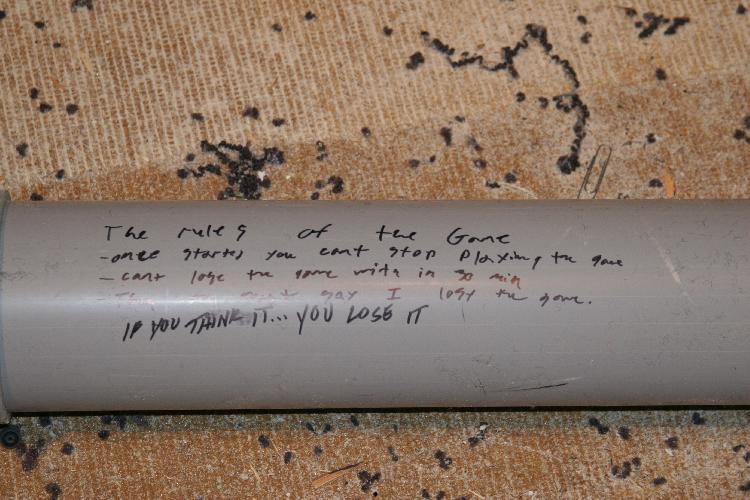 The rules of the Game
-once started you cant stop Playing the game
-cant lose the game with in 30 min
must say I lost the game.
IF YOU THINK IT... YOU LOSE IT